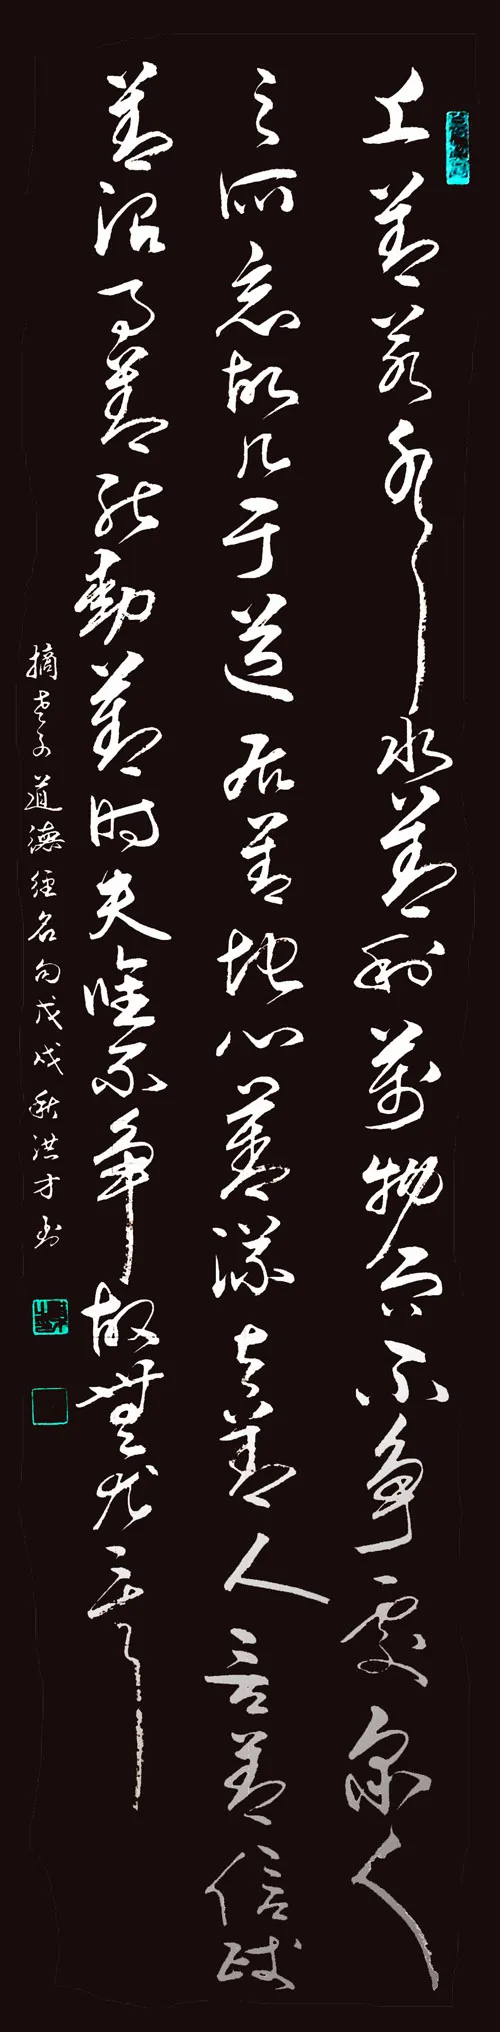 上善若水水善利萬物而不争處衆人
之所惡故几于道居善地心善渊与善人言善信政
善治事善能動善时夫唯不争故無尤
摘老子道德经名句戊戌秋洪才书